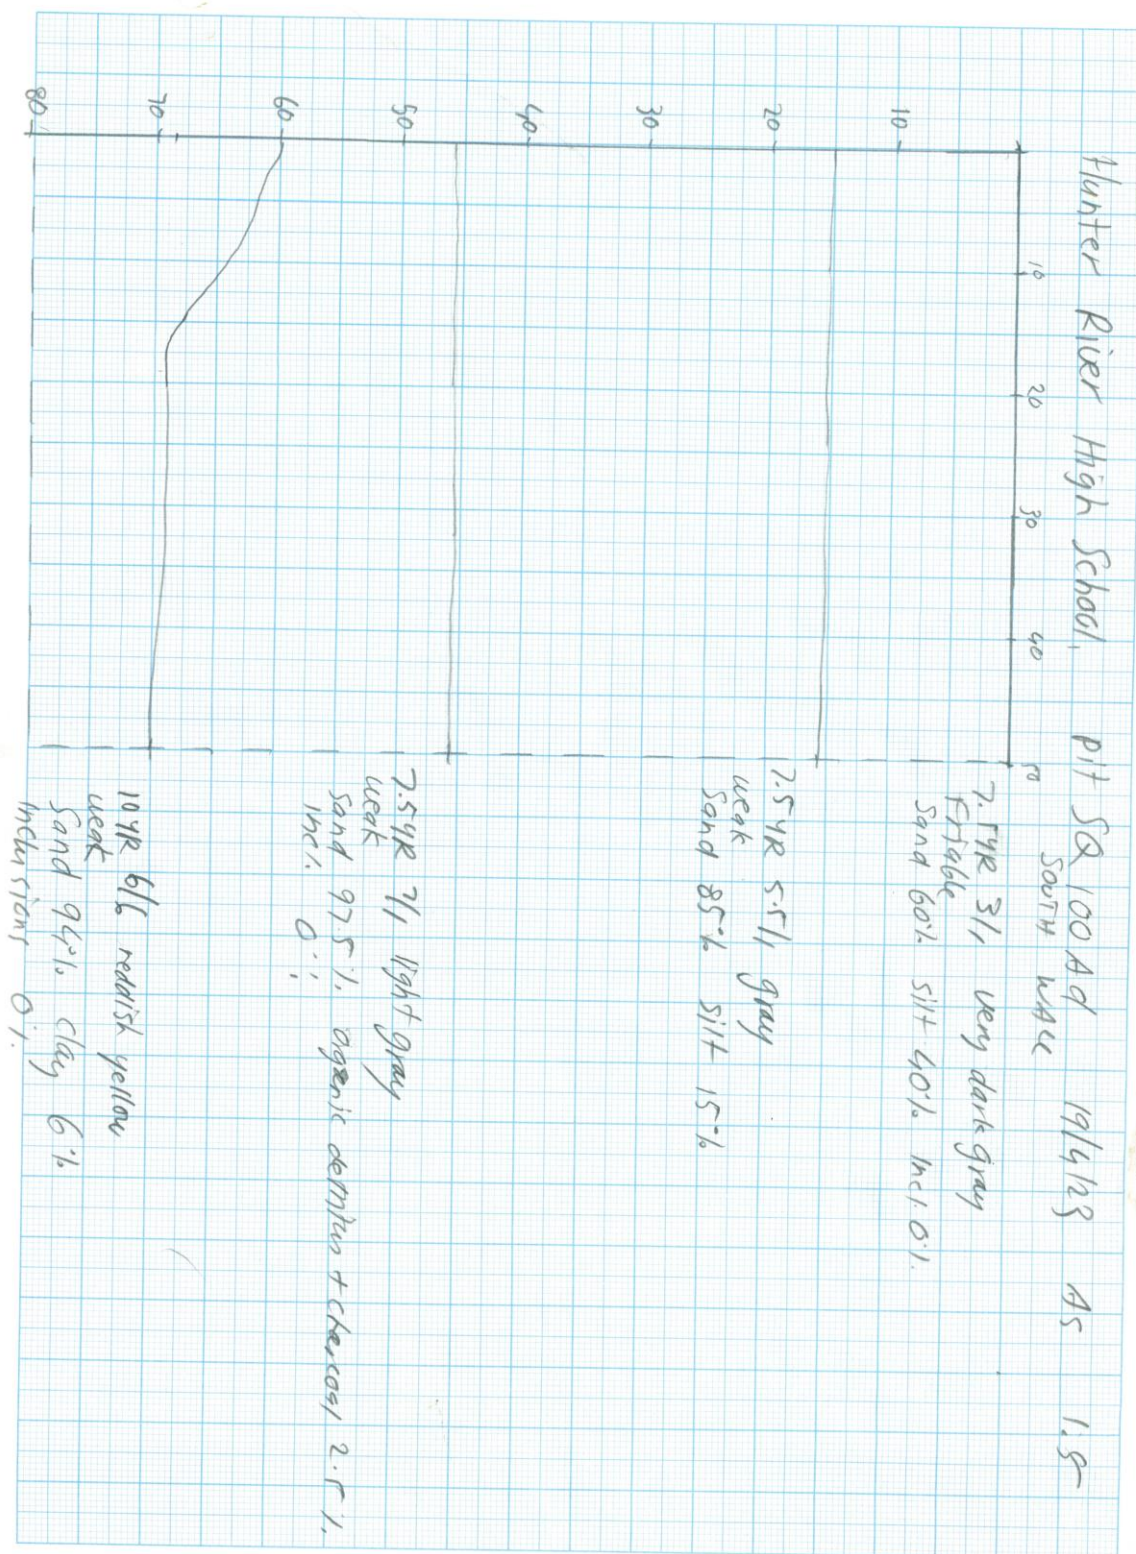 Hunter River High School, pit SQ 100 Ad 19/4/23 AS 1:5
SOUTH WALL
10 20 30 40 50
10
20
30
40
50
60
70
80
7.5YR 3/1 very dark gray
Friable
Sand 60% silt 40% incl. 0%
7.5YR 5.5/1 gray
weak
Sand 85% silt 15%
7.5YR 7/1 light gray
weak
Sand 97.5% organic detritus + charcoal 2.5%
incl. 0%
10YR 6/6 reddish yellow
weak
Sand 94% clay 6%
Inclusions 0%